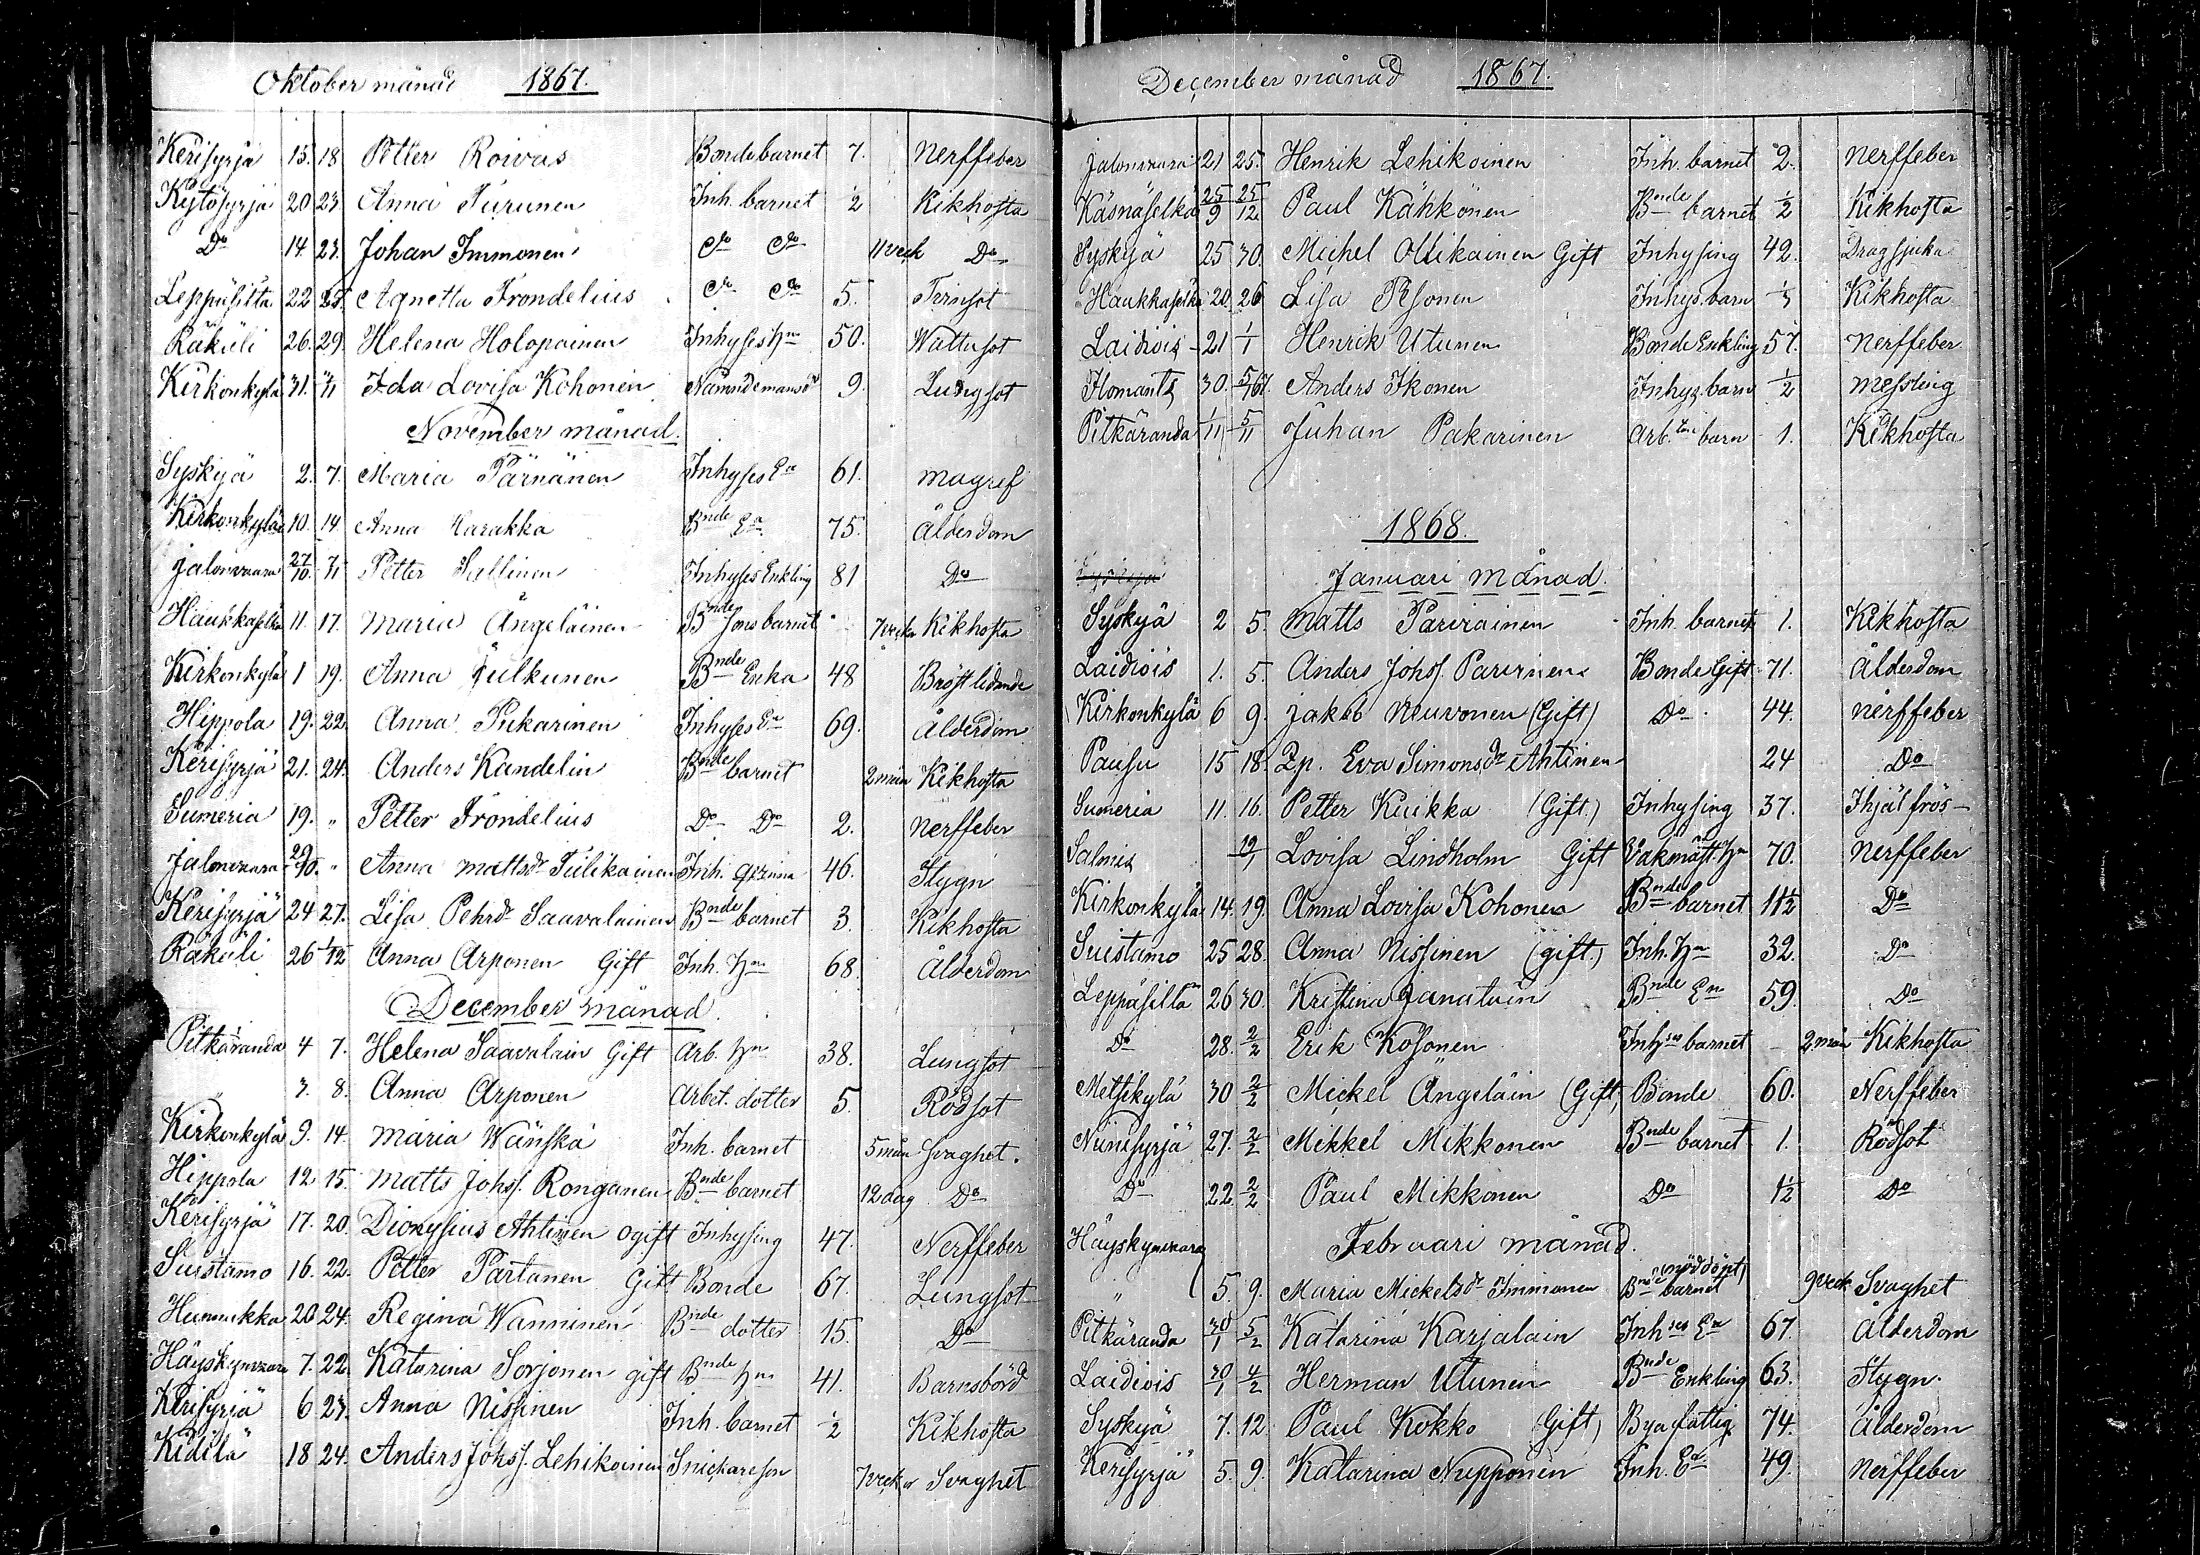 Oktober månad 1867.
Kerisyrjä 15. 18 Petter Roivas Bondebarnet 7. Nerffeber
Kytösyrjä 20 23 Anna Turunen Inh. barnet ½ Kikhosta
Do 14 23. Johan Immonen do do 11 veck Do
Leppäsilta 22 25. Agnetta Frondelius do do 5. Tvinsot
Räkäli 26. 29. Helena Holopainen Inhyses hu 50. Wattusot
Kirkonkylä 31. 3/11 Ida Lovisa Kohonen Nämndemansdr 9. Lungsot
November månad.
Syskyä 2. 7. Maria Pärnänen Inhyses Ea 61. magref
Kirkonkylä 10. 14. Anna Harakka Bnde Ea 75. Ålderdom
Jalonvaara 27/10. 3/11 Petter Hallinen Inhyses Enkling 81 Do
Haukkaselkä 11. 17. Maria Ängeläinen Bnde sons barnet 7 vecka Kikhosta
Kirkonkylä 1 19. Anna Julkunen Bnde Enka 48 Bröstlidande
Hippola 19. 22. Anna Pukarinen Inhyses Ea 69. Ålderdom
Kerisyrjä 21. 24. Anders Kandelin Bnde barnet 2 mån Kikhosta
Sumeria 19. " Petter Frondelius Do Do 2. Nerffeber
Jalonvaara 29/10. " Anna Mattsdr Tulikainen Inh. qvinna 46. Stygn
Kerisyrjä 24 27. Lisa Pehrdr Saavalainen Bnde barnet 3. Kikhosta
Räkäli 26 1/12 Anna Arponen Gift Inh. hu 68. Ålderdom
December månad.
Pitkäranda 4 7. Helena Saavalain Gift Arb. hu 38. Lungsot
" 3. 8. Anna Arponen Arbet. dotter 5. Rödsot
Kirkonkylä 9. 14. Maria Wänskä Inh. barnet 5 mån Svaghet.
Hippola 12 15. Matts Johs. Ronganen Bnde barnet 12 dag Do
Kerisyrjä 17. 20. Dionysius Ahtinen ogift Inhysing 47. Nerffeber
Suistamo 16. 22. Petter Partanen Gift Bonde 67. Lungsot
Hunnukka 20 24. Regina Wänninen Bnde dotter 15. Do
Häyskynvaara 7. 22 Katarina Sorjonen gift Bnde hu 41. Barnsbörd
Kerisyrjä 6 23. Anna Nissinen Inh. barnet ½ Kikhosta
Kidelä 18 24. Anders Johs. Lehikoinen Snickareson 7 veckor Svaghet
December månad 1867.
Jalonvaara 21 25. Henrik Lehikoinen Inh. barnet 2. Nerffeber
Käsnäselkä 25/9 25/12 Paul Kähkönen Bnde barnet ½ Kikhosta
Syskyä 25 30. Michel Ollikainen Gift Inhysing 42. Dragsjuka
Haukkaselkä 20 26 Lisa Pesonen Inhys. barn 1/3 Kikhosta
Laidiois 21 1/1 Henrik Utunen Bonde Enkling 57. Nerffeber
Ilomants 30. 5/67. Anders Ikonen Inhys. barn ½ Messling
Pitkäranda 1/11 5/11 Juhan Pakarinen Arb. barn 1. Kikhosta
1868.
Syskyä Januari månad.
Syskyä 2 5. Matts Parviainen Inh. barnet 1. Kikhosta
Laidiois 1. 5. Anders Johs. Parvinen Bonde Gift 71. Ålderdom
Kirkonkylä 6 9. Jakob Neuvonen (Gift) Do 44. Nerffeber
Pausu 15 18. Qp. Eva Simonsdr Ahtinen 24 Do
Sumeria 11. 16. Petter Kuikka (Gift.) Inhysing 37. Ihjäl frös
Salmis 19/1 Lovisa Lindholm Gift Vakmäst. hu 70. Nerffeber
Kirkonkylä 14. 19. Anna Lovisa Kohonen Bnde barnet 1½ Do
Suistamo 25 28. Anna Nissinen (gift.) Inh. hu 32. Do
Leppäsilta 26 30. Kristina Janatuin Bnde En 59. Do
Do 28. 2/2 Erik Kosonen Inhses barnet 2 mån Kikhosta
Metsikylä 30 2/2 Mickel Angeläin (Gift) Bonde 60. Nerffeber
Niinisyrjä 27. 2/2 Mikkel Mikkonen Bnde barnet 1. Rödsot
Do 22. 2/2 Paul Mikkonen Do 1½ Do
Häyskynvaara Februari månad.
" 5. 9. Maria Mickelsdr Immonen Bnde barnet (nöddöpt) 9 veck Svaghet
Pitkäranda 30/1 5/2 Katarina Karjalain Inhses Ea 67. Ålderdom
Laidiois 30/1 4/2 Herman Utunen Bnde Enkling 63. Stygn.
Syskyä 7. 12 Paul Kokko (Gift) Bya fattig 74. Ålderdom
Kerisyrjä 5. 9. Katarina Nupponen Inh. Ea 49. Nerffeber